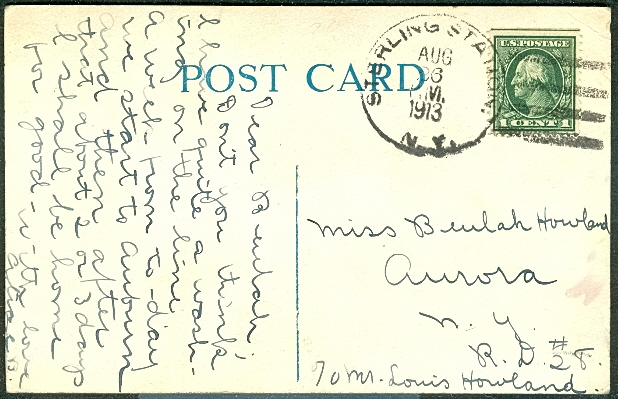 POST CARD
STERLING STATION
AUG
26
M.
1913
N. Y.
U.S. POSTAGE
1 CENT 1
Dear Beulah,
Don't you think
I have quite a wash-
ing on the line
a week from to-day
we start to Auburn
and then after
that about 2 or 3 days
I shall be home
for good - with love
Miss Beulah Howland
Aurora
N. Y.
R. D. # 28.
To Mr. Louis Howland.